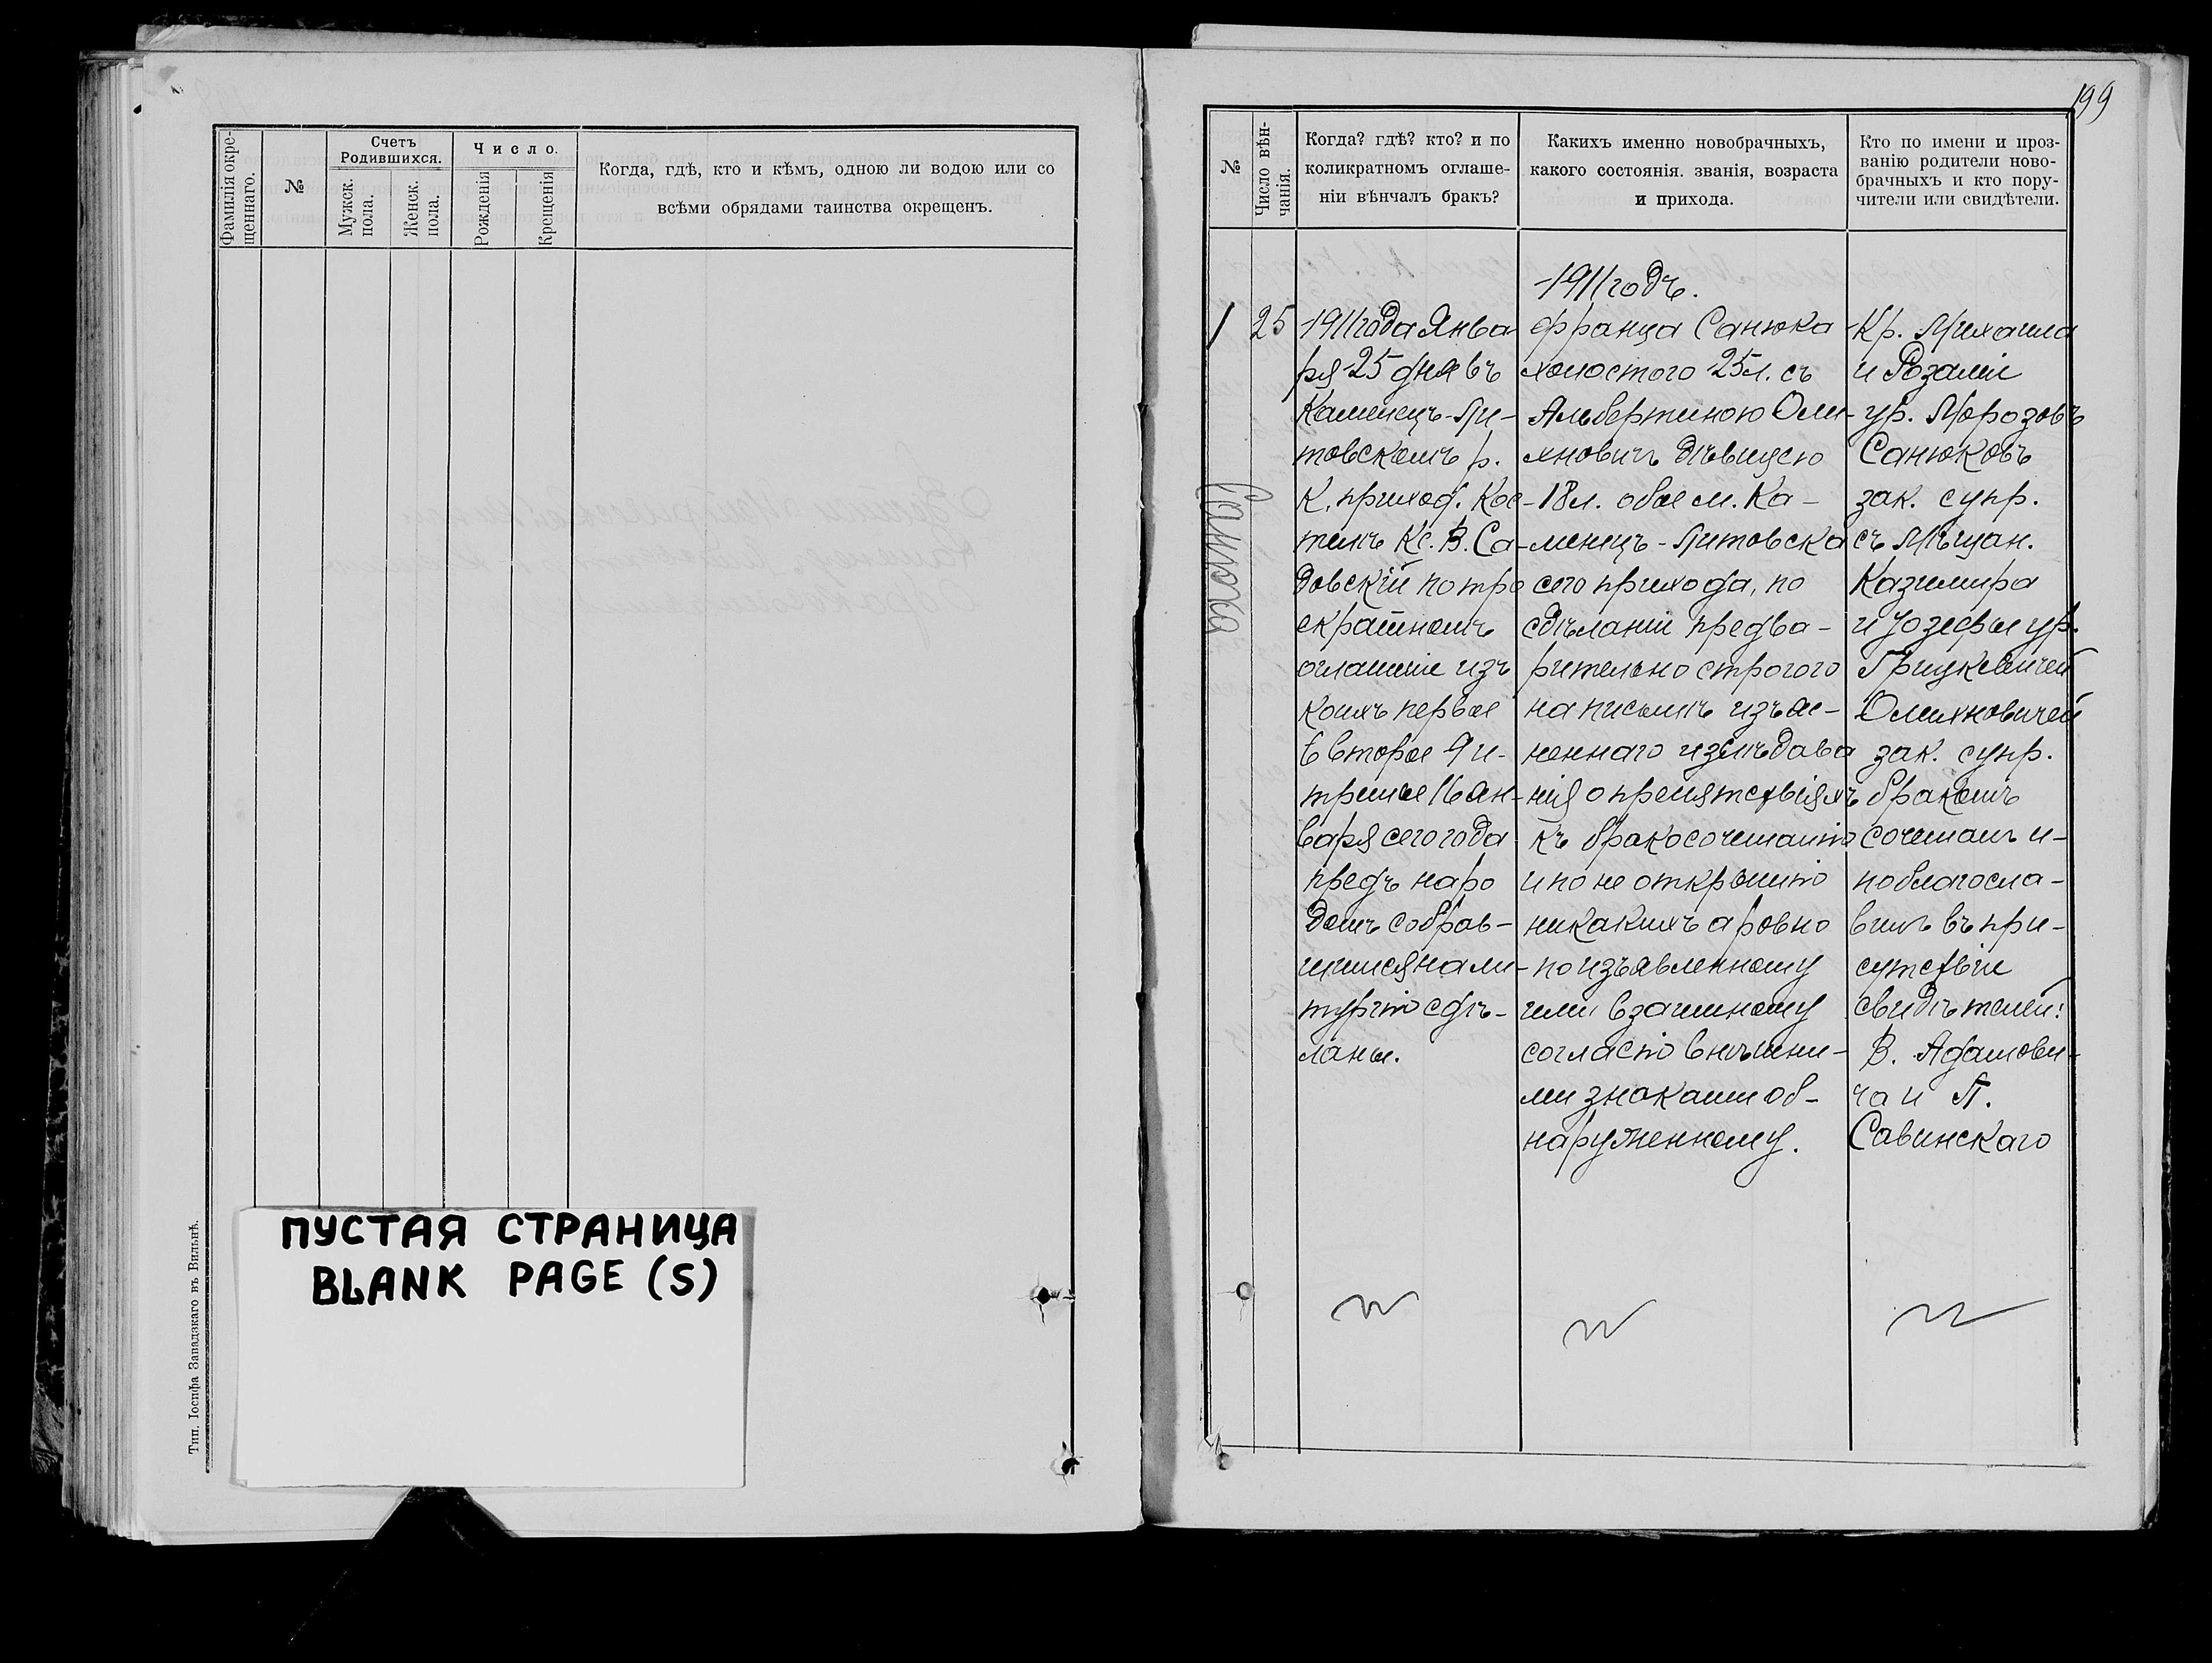 Фамилія окре-
щеннаго.
№
Счетъ
Родившихся.
Мужск.
пола.
Женск.
пола.
Число.
Рожденія
Крещенія
Когда, гдѣ, кто и кѣмъ, одною ли водою или со
всѣми обрядами таинства окрещенъ.
Тип. Іосифа Завадзкаго въ Вильнѣ.
ПУСТАЯ СТРАНИЦА
BLANK PAGE (S)
199
№
Число вѣн-
чанія.
Когда? гдѣ? кто? и по
коликратномъ оглаше-
ніи вѣнчалъ бракъ?
Какихъ именно новобрачныхъ,
какого состоянія. званія, возраста
и прихода.
Кто по имени и проз-
ванію родители ново-
брачныхъ и кто пору-
чители или свидѣтели.
1
Санюка
25
1911 года Янва-
ря 25 дня въ
Каменецъ-Ли-
товскомъ р.
К. приход. Кос-
телѣ Кс. В. Са-
довскій по тре
скратномъ
оглашеніи изъ
коихъ первое
6 второе 9 и-
третье 16 ян-
варя сего года
предъ наро
домъ собрав-
шимся на ли-
тургію сдѣ-
ланы.
1911 годъ.
Франца Санюка
холостого 25 л. съ
Альбертиною Оли-
хновичъ дѣвицею
18 л. обое м. Ка-
менецъ-Литовска
сего прихода, по
сдѣланіи предва-
рительно строгого
на письмѣ изъяс-
неннаго изслѣдова
нія о препятствіяхъ
къ бракосочетанію
и по не открытію
никакихъ а ровно
по изъявленному
ими взаимному
согласію внѣшни-
ми знаками об-
наруженному.
Кр. Михаила
и Розаліи
ур. Морозовъ
Санюковъ
зак. супр.
съ Мѣщан.
Казимира
и Юзефы ур.
Грицкевичей
Олихновичей
зак. супр.
бракомъ
сочеталъ и-
поблагосла-
вилъ въ при-
сутствіи
свидѣтелей:
В. Адамови-
ча и П.
Савинскаго